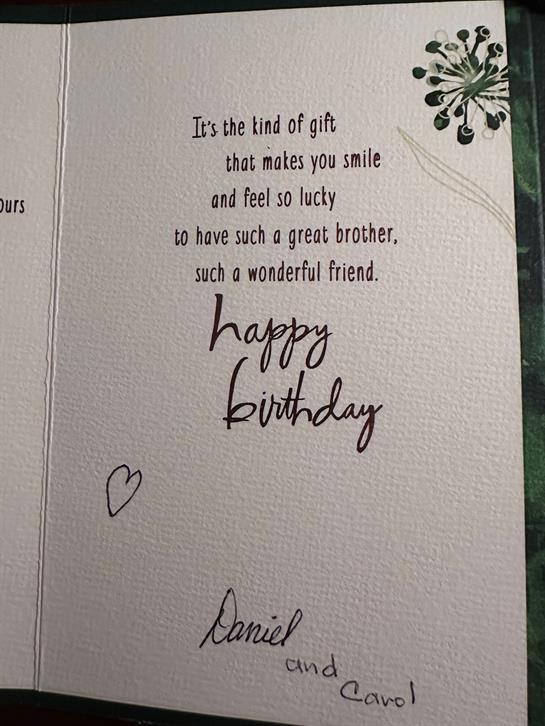 ours
It's the kind of gift
that makes you smile
and feel so lucky
to have such a great brother,
such a wonderful friend.
happy
birthday
Daniel
and
Carol